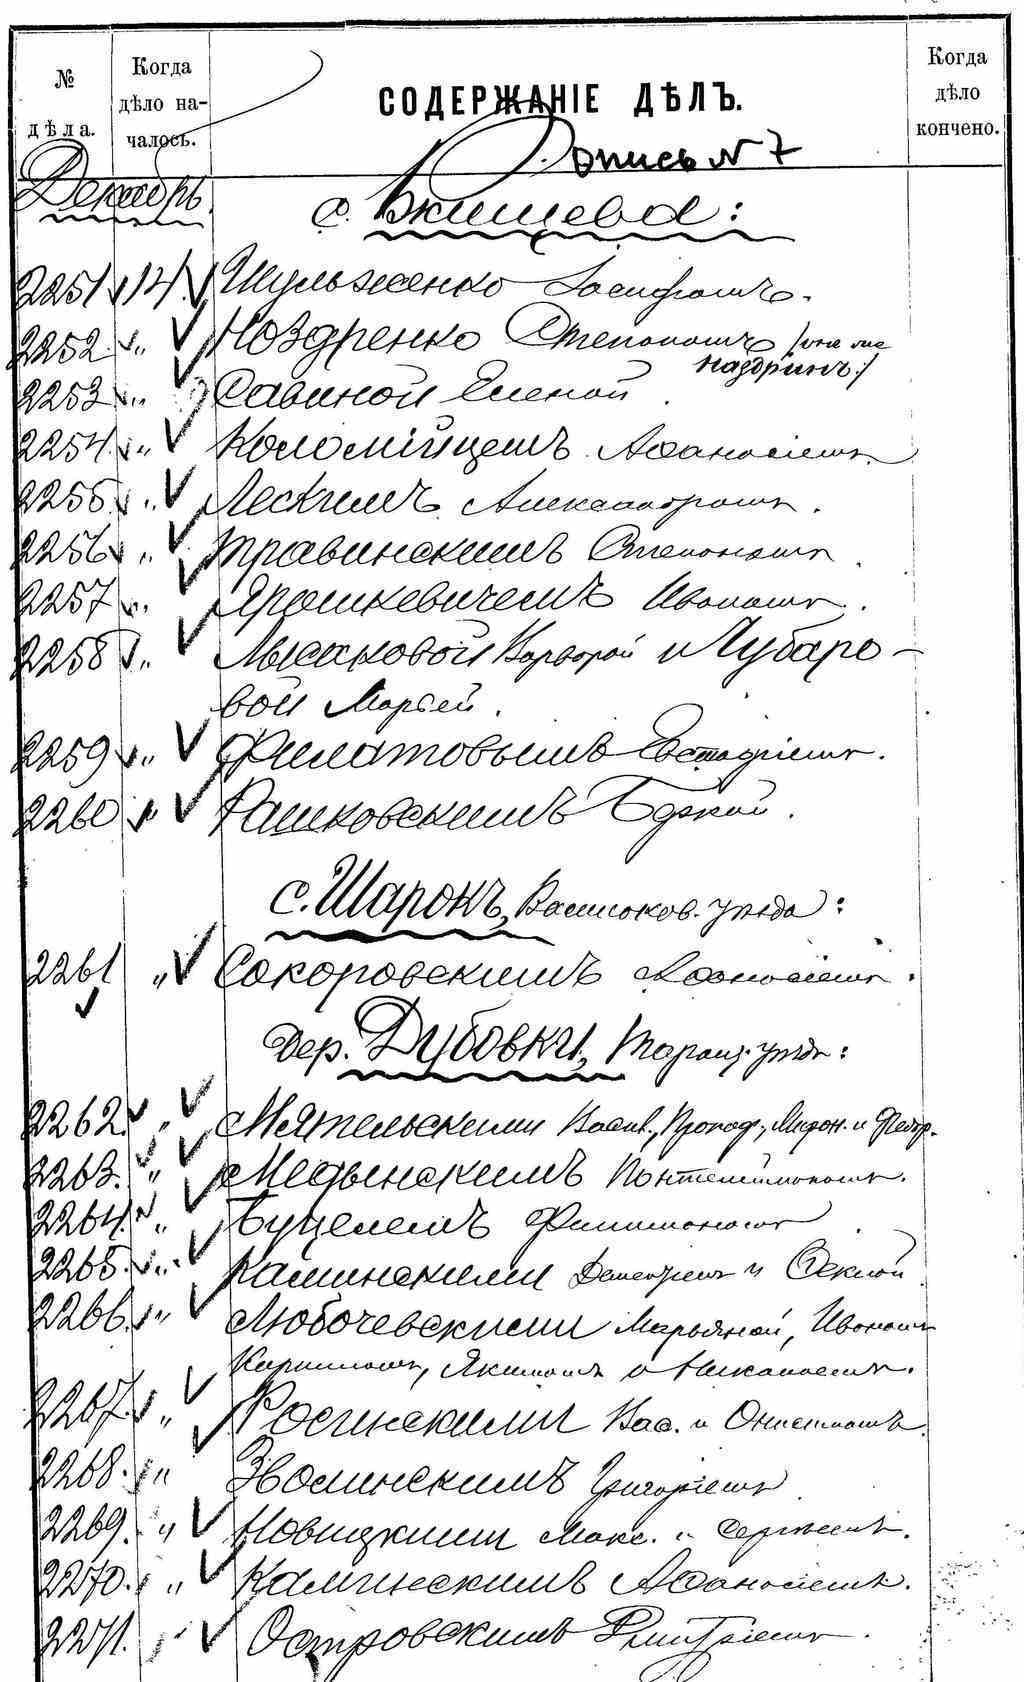 № дѣла.
Когда дѣло началось.
СОДЕРЖАНІЕ ДѢЛЪ.
Когда дѣло кончено.
Опись N 7
Декабрь.
с. Ржищева:
2251 14. Шульженко Іосифомъ.
2252 " Ноздренко Степаномъ /онъ же
Наздринъ:/
2253 " Савиной Еленой.
2254 " Коломійцемъ Афанасіемъ.
2255 " Лескимъ Александромъ.
2256 " Травинскимъ Степаномъ.
2257 " Ярошкевичемъ Иваномъ.
2258 " Лысаковой Варварой и Лубаро-
вой Марѳей.
2259 " Филатовымъ Евстафіемъ.
2260 " Рашковскимъ
с. Шарокъ, Васильков. уѣзда:
2261 " Сокоровскимъ Афанасіемъ.
дер. Дубовки, Таращ. уѣзда:
2262. " Мятельскими Васил., Прокоф., Мирон. и Федор.
2263. " Медынскимъ Пантелеимономъ.
2264. " Буцелемъ Филимономъ
2265. " Каминскими Дементіемъ и Феклой
2266. " Любочевскими Марьяной, Иваномъ
Кирилломъ, Якимомъ и Никаноемъ.
2267. " Росинскими Вас. и Онисимомъ.
2268. " Зволинскимъ Григоріемъ
2269. " Новицкими Макс. и Сергѣемъ.
2270. " Каминскимъ Афанасіемъ.
2271. " Островскимъ Дмитріемъ.